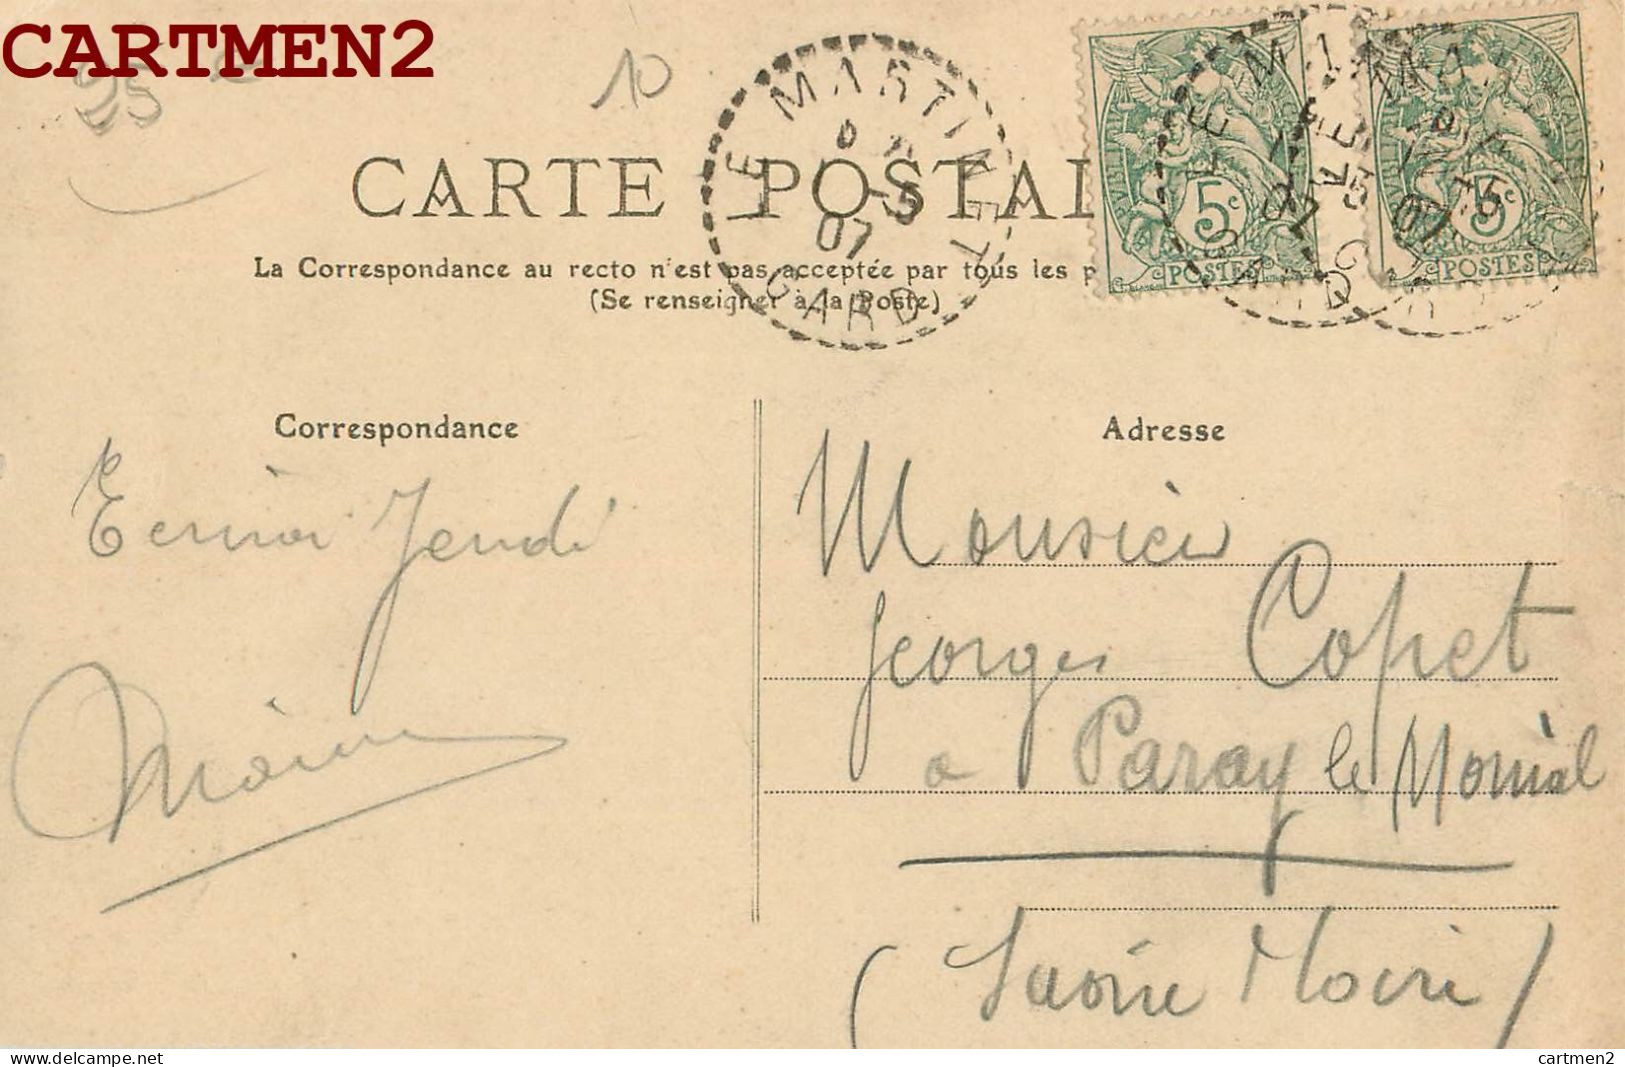 CARTMEN2
25 €
10
CARTE POSTAL
LE MARTINET
5
07
GARD
5c
POSTES
5c
POSTES
La Correspondance au recto n'est pas acceptée par tous les p
(Se renseigner à la Poste)
Correspondance
Adresse
Monsieur
Georges Copet
a Paray le Monial
(Saône & Loire)
cartmen2
cartmen2